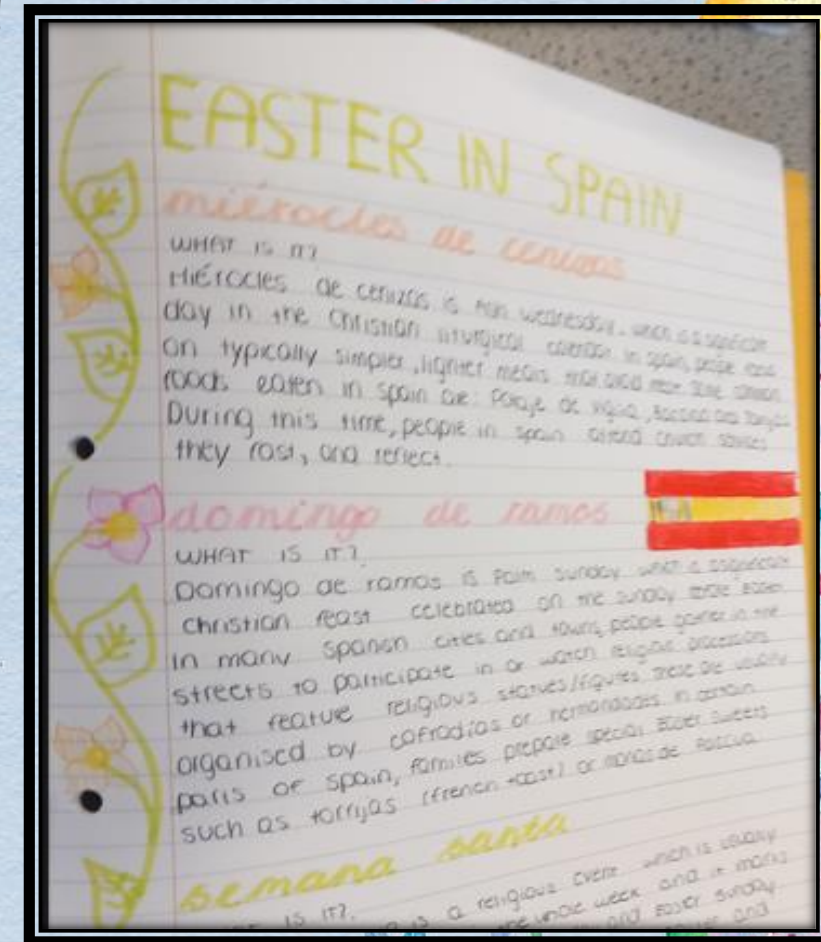 EASTER IN SPAIN
miérocles de cenizas
WHAT IS IT?
Miérocles de cenizas is Wednesday, which is a significant
day in the Christian liturgical calendar. in Spain, people
on typically simpler, lighter meals that avoid meat. Some common
foods eaten in Spain are: Potaje de vigilia,
During this time, people in Spain attend church services
they fast, and reflect.
domingo de ramos
WHAT IS IT?
Domingo de ramos is Palm Sunday which is a significant
Christian feast celebrated on the Sunday before Easter
in many Spanish cities and towns, people gather in the
streets to participate in or watch religious processions
that featue religious statues/figures these are usually
organised by cofradías or hermandades. in certain
parts of Spain, families prepare special Easter sweets
such as torrijas (french toast) or monas de Pascua
semana santa
IS IT?
is a religious event which is usually
the whole week and it marks
and Easter Sunday
and